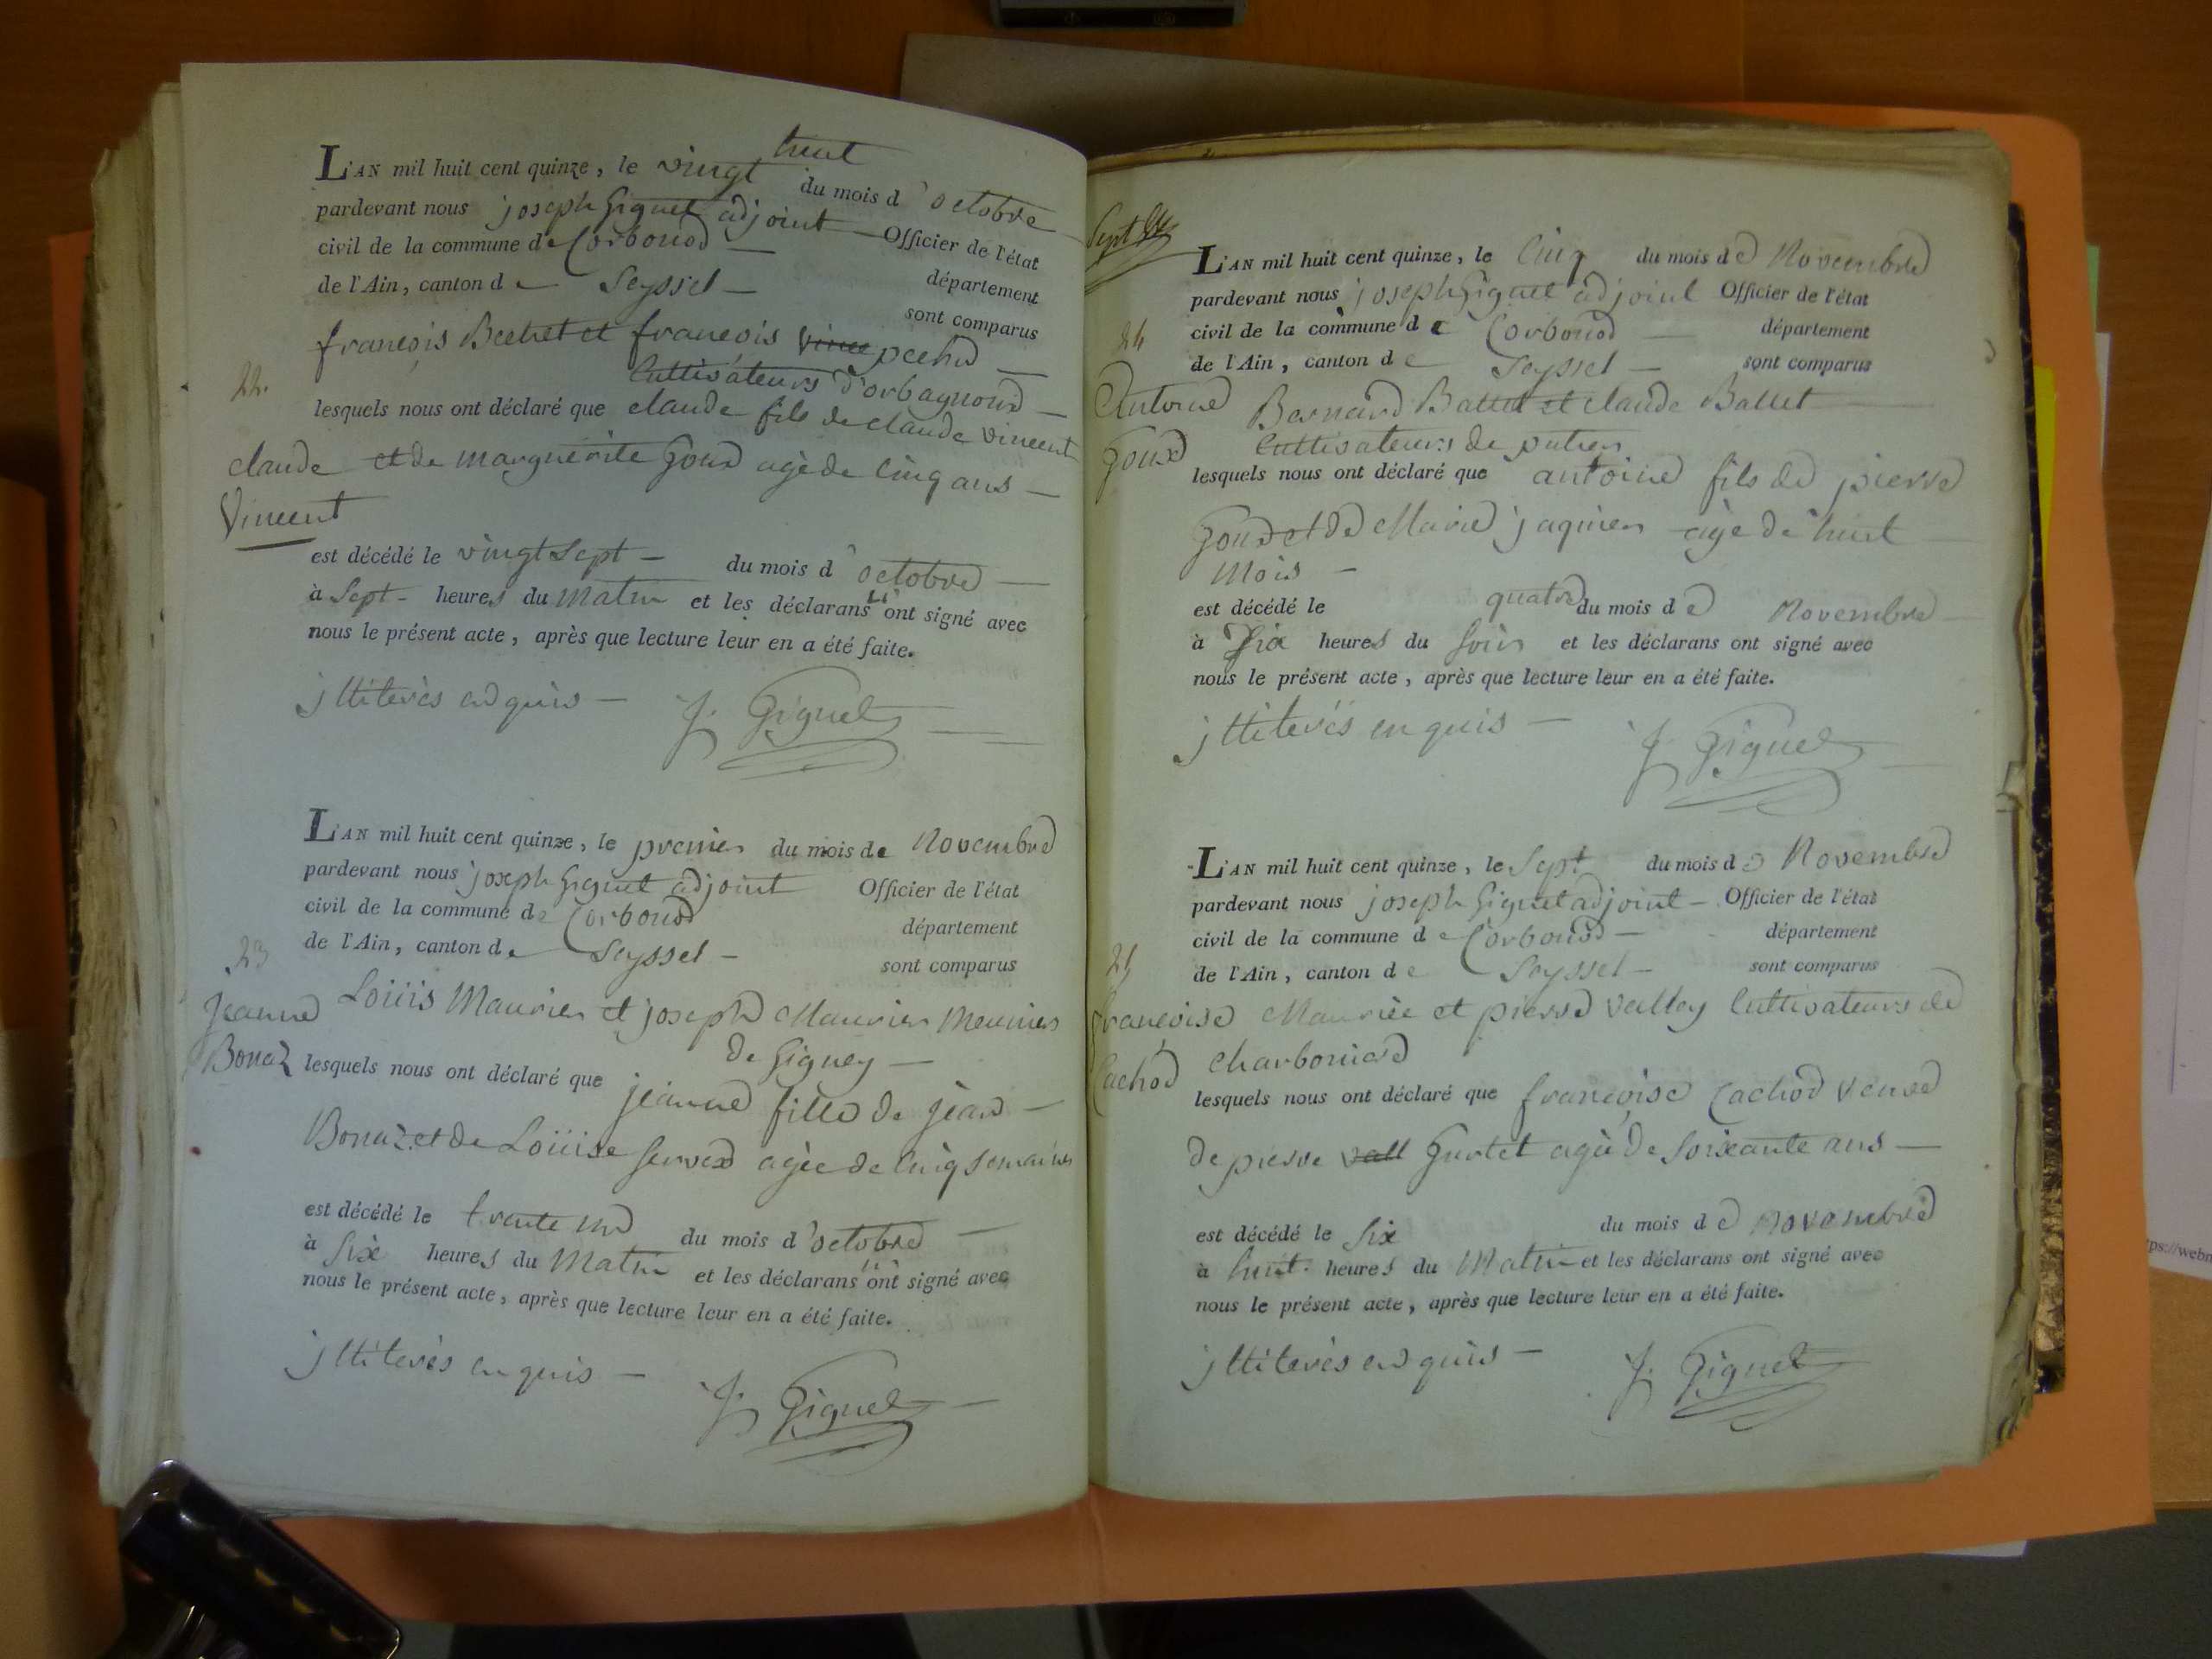 L'AN mil huit cent quinze, le vingt huit du mois d'octobre
pardevant nous joseph Giguet adjoint Officier de l'état
civil de la commune de Corbonod département
de l'Ain, canton de Seyssel sont comparus
françois Bechet et françois pechd
Cultivateurs d'orbagnoud
22.
lesquels nous ont déclaré que claude fils de claude vincent
claude
et de marguerite Goux agé de Cinq ans
Vincent
est décédé le vingt sept du mois d'octobre
à Sept heures du Matin et les déclarans ont signé avec
nous le présent acte, après que lecture leur en a été faite.
jllitérés enquis J. Giguet
L'AN mil huit cent quinze, le premier du mois de Novembre
pardevant nous joseph Giguet adjoint Officier de l'état
civil de la commune de Corbonod département
de l'Ain, canton de Seyssel sont comparus
23
Jeanne
Louis Maurier et joseph Maurier Meunier
de Gigney
Bonaz
lesquels nous ont déclaré que jeanne fille de jean
Bonaz et de Louise agée de Cinq semaines
est décédé le trente un du mois d'octobre
à Six heures du Matin et les déclarans ont signé avec
nous le présent acte, après que lecture leur en a été faite.
jllitérés enquis J. Giguet
Sept
L'AN mil huit cent quinze, le Cinq du mois de Novembre
pardevant nous joseph Giguet adjoint Officier de l'état
civil de la commune de Corbonod département
24
de l'Ain, canton de Seyssel sont comparus
Antoine
Bernard Ballet et claude Ballet
Goux
Cultivateurs de putier
lesquels nous ont déclaré que antoine fils de pierre
Goux et de Marie jaquier agé de huit
Mois
est décédé le quatre du mois de Novembre
à Six heures du Soir et les déclarans ont signé avec
nous le présent acte, après que lecture leur en a été faite.
jllitérés enquis J. Giguet
L'AN mil huit cent quinze, le Sept du mois de Novembre
pardevant nous joseph Giguet adjoint Officier de l'état
civil de la commune de Corbonod département
25
de l'Ain, canton de Seyssel sont comparus
françoise
et pierre valley Cultivateurs de
Cachod
Charboniere
lesquels nous ont déclaré que françoise Cachod veuve
de pierre vall Gurtet agée de Soixante ans
est décédé le Six du mois de Novembre
à huit heures du Matin et les déclarans ont signé avec
nous le présent acte, après que lecture leur en a été faite.
jllitérés enquis J. Giguet